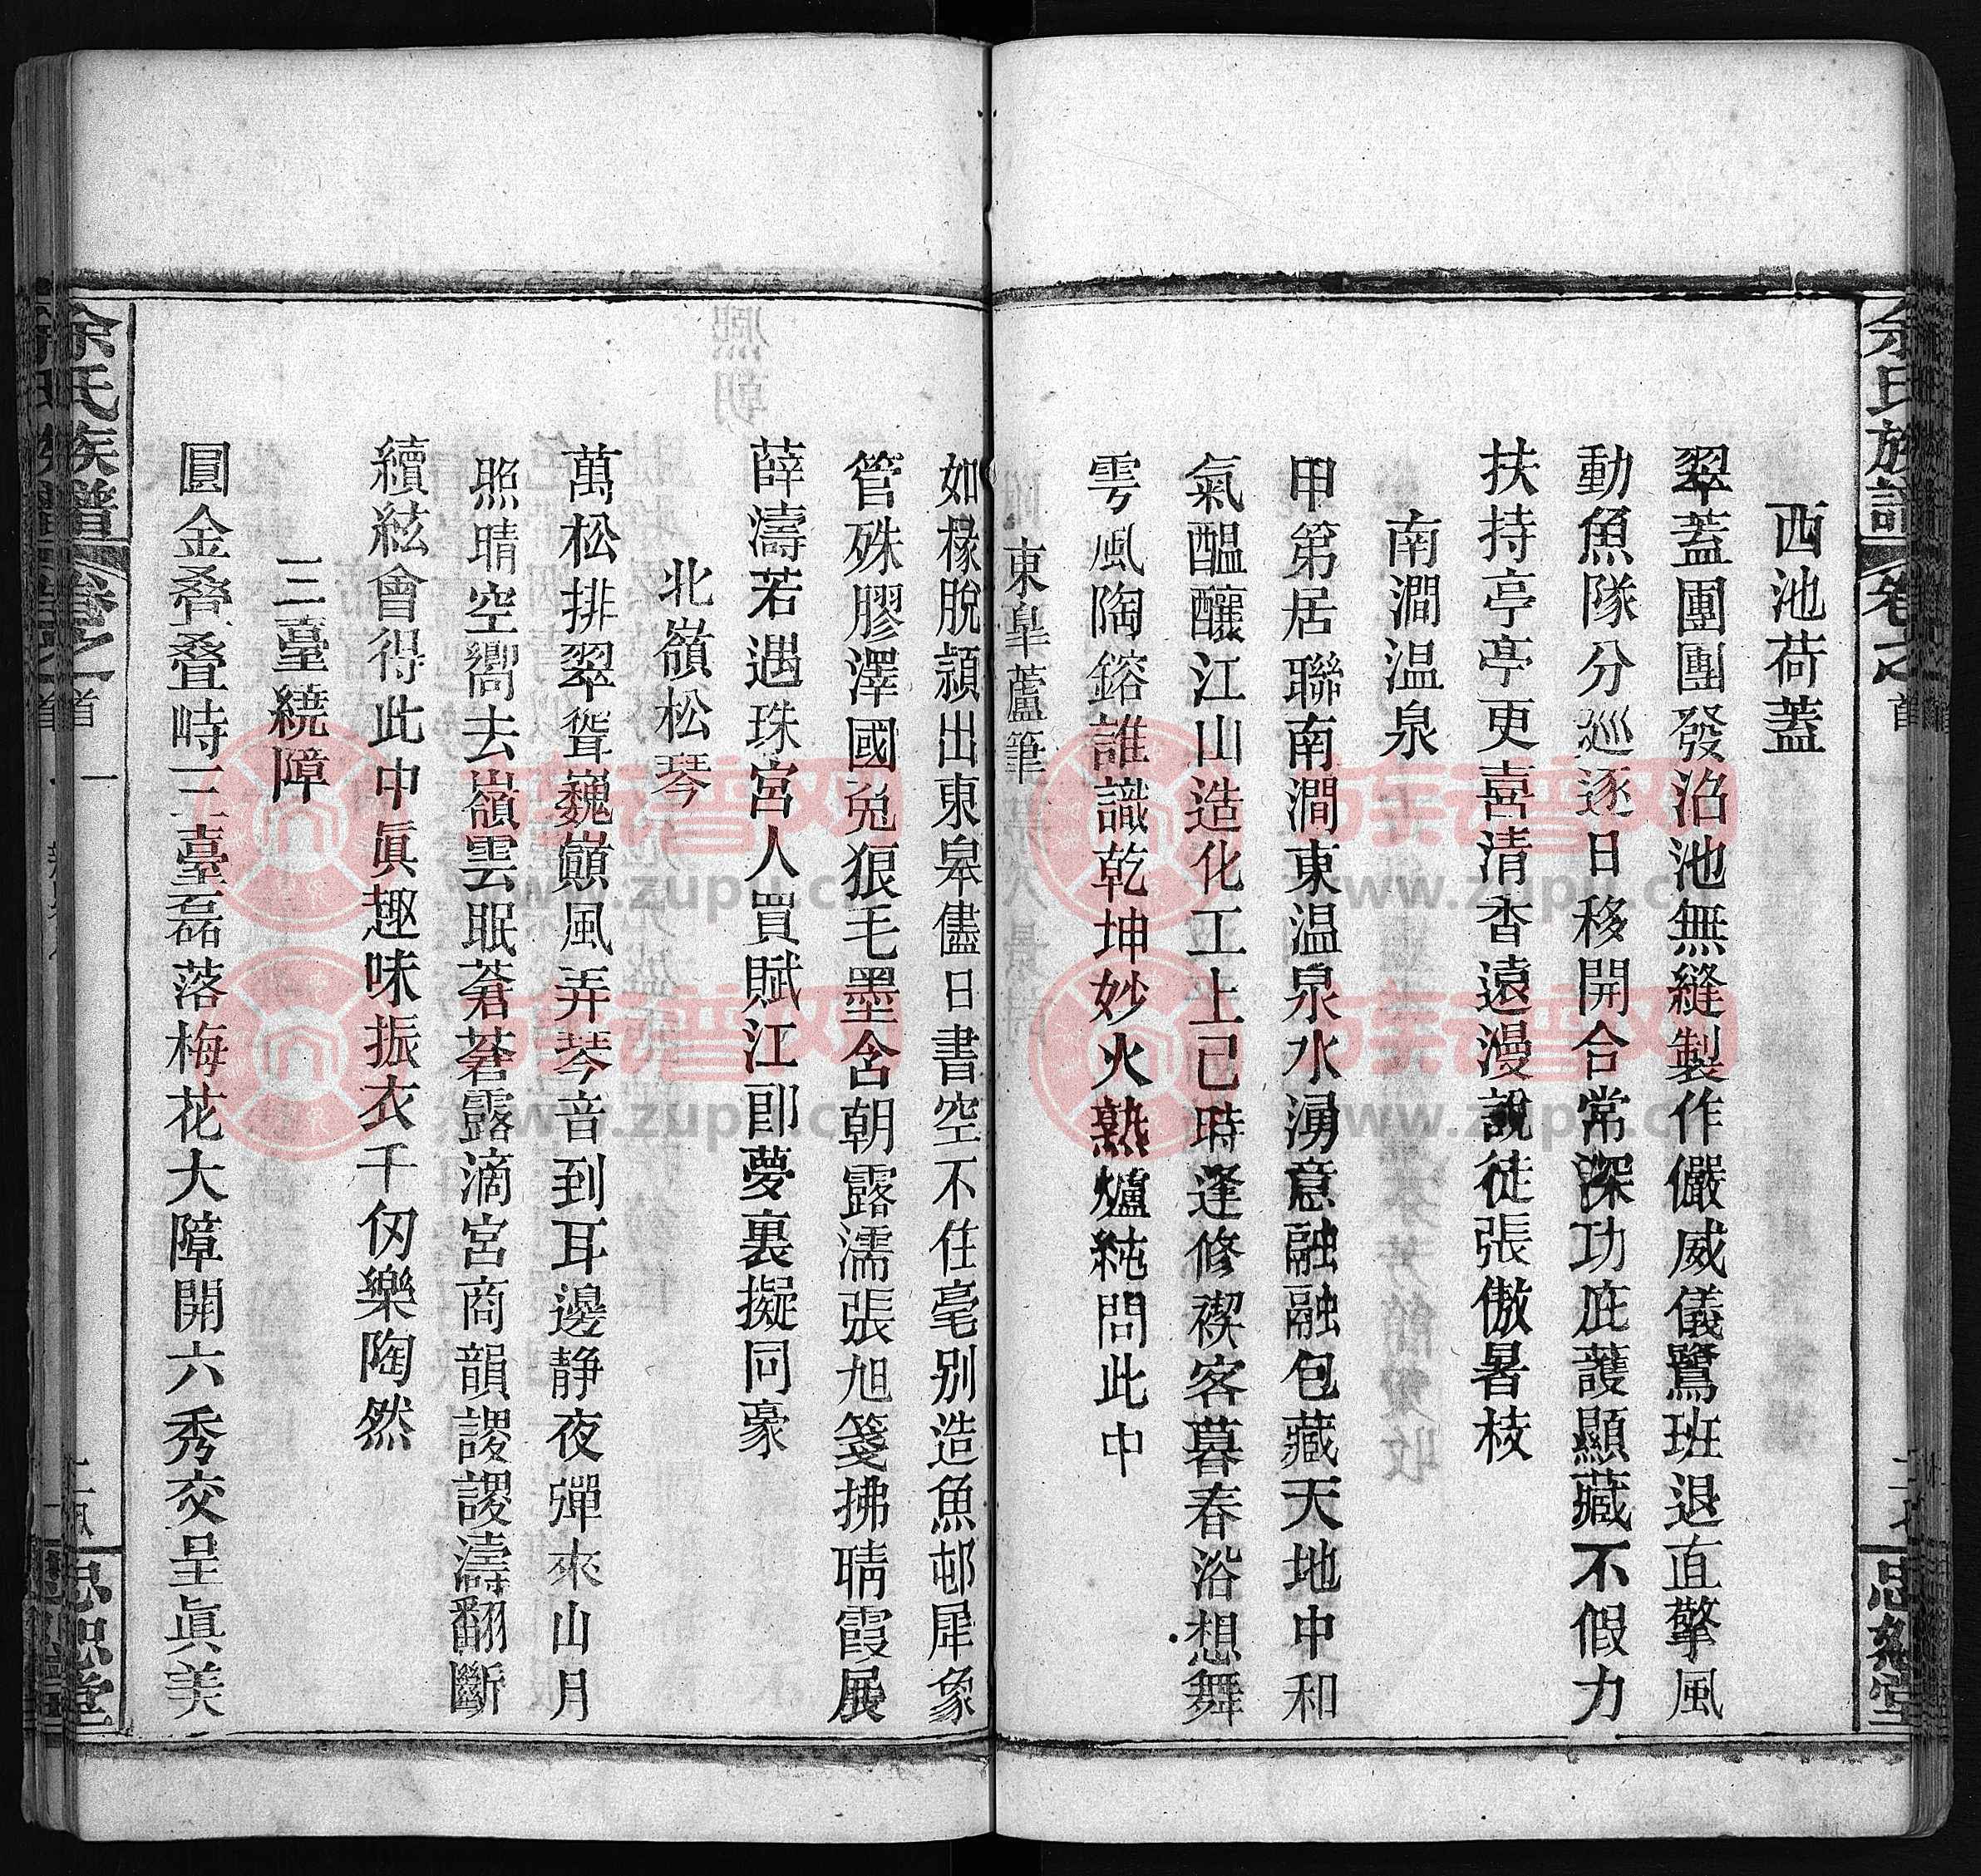 余氏族譜 卷之首
西池荷蓋
翠蓋團團發沼池無縫製作儼威儀鷺班退直擎風
動魚隊分巡逐日移開合常深功庇護顯藏不假力
扶持亭亭更喜清香遠漫說徒張傲暑枝
南澗温泉
甲第居聯南澗東温泉水湧意融融包藏天地中和
氣醞釀江山造化工上已時逢修禊客暮春浴想舞
雩風陶鎔誰識乾坤妙火熟爐純問此中
東臯蘆筆
如椽脫頴出東臯儘日書空不住毫别造魚邨犀象
管殊膠澤國兔狼毛墨含朝露濡張旭箋拂晴霞展
薛濤若遇珠宮人買賦江郎夢裏擬同豪
北嶺松琴
萬松排翠聳巍巔風弄琴音到耳邊静夜彈來山月
照晴空嚮去嶺雲眠蒼蒼露滴宮商韻謖謖濤翻斷
續絃會得此中眞趣味振衣千仞樂陶然
三臺繞障
圓金叠叠峙三臺磊落梅花大障開六秀交呈眞美
余氏族譜 卷之首 一
忠恕堂
族譜网
www.zupu.cn
族譜网
www.zupu.cn
族譜网
www.zupu.cn
族譜网
www.zupu.cn